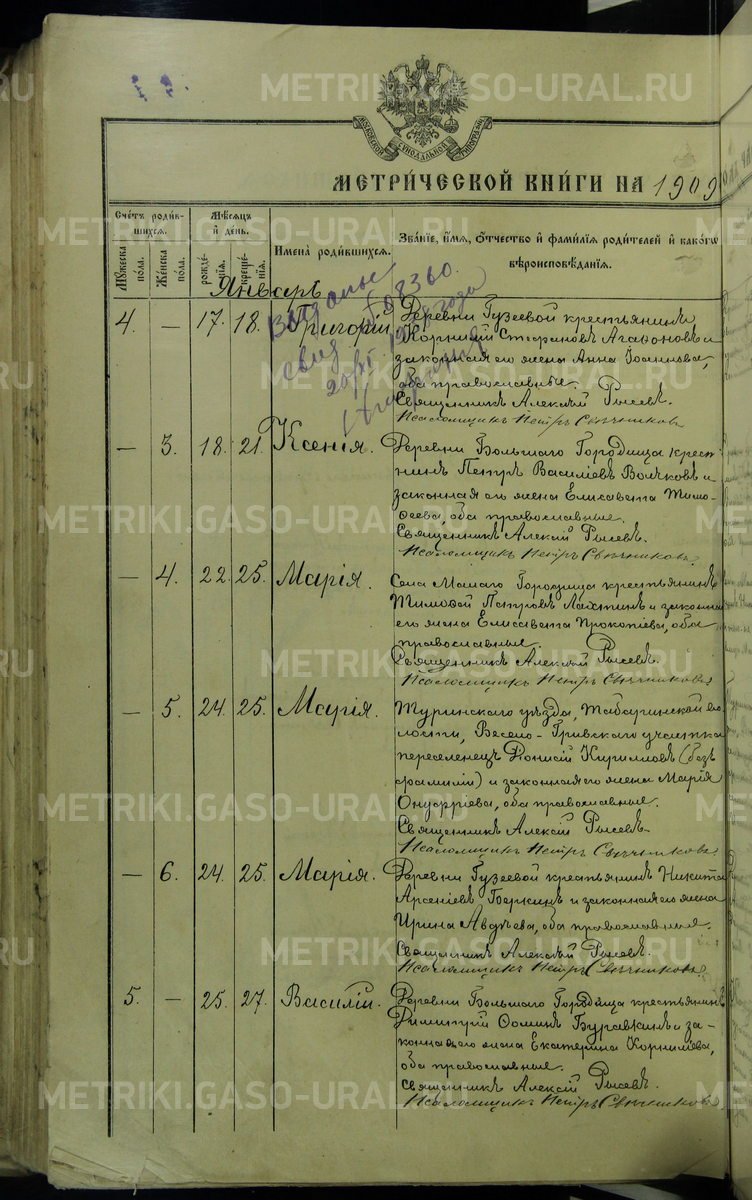 МЕТРИ́ЧЕСКОЙ КНИ́ГИ НА 1909
Сче́тъ роди́в-
шихся.
Мѣ́сяцъ
и҆ де́нь.
Имена̀ роди́вшихся.
Зва́нїе, и҆́мя, ѻ҆́тчество и҆ фами́лїя роди́телей и҆ како́гѡ
вѣроисповѣ́данїя.
Мꙋ́жеска по́ла.
Же́нска по́ла.
рожде́-нїя.
креще́-нїя.
Январь
Выдано
свид №08360.
4. — 17. 18. Григорій
Деревни Гузеевой крестьянинъ
Корнилій Стефановъ Агафоновъ и
законная его жена Анна Іоаннова,
оба православные.
Священникъ Алексій Рысевъ.
Псаломщикъ Петръ Свѣчниковъ.
— 3. 18. 21. Ксенія.
Деревни Большаго Городища крест-
нинъ Петръ Василіевъ Волковъ и
законная его жена Елисавета Тимо-
ѳеева, оба православные.
Священникъ Алексій Рысевъ.
Псаломщикъ Петръ Свѣчниковъ.
— 4. 22. 25. Марія.
Села Малаго Городища крестьянинъ
Тимоѳей Петровъ Лаптинъ и законная
его жена Елисавета Прокопіева, оба
православные.
Священникъ Алексій Рысевъ.
Псаломщикъ Петръ Свѣчниковъ.
— 5. 24. 25. Марія.
Туринскаго уѣзда, Табаринской во-
лости, Весело-Гривскаго участка
переселенецъ Діонисій Кирилловъ (безъ
фамиліи) и законная его жена Марія
Онуфріева, оба православные.
Священникъ Алексій Рысевъ.
Псаломщикъ Петръ Свѣчниковъ.
— 6. 24. 25. Марія.
Деревни Гузеевой крестьянинъ Никита
Арсеніевъ Беркинъ и законная его жена
Ирина Авдѣева, оба православные.
Священникъ Алексій Рысевъ.
Псаломщикъ Петръ Свѣчниковъ.
5. — 25. 27. Василій.
Деревни Большаго Городища крестьянинъ
Димитрій Ѳоминъ Буравкинъ и за-
конная его жена Екатерина Корниліева,
оба православные.
Священникъ Алексій Рысевъ.
Псаломщикъ Петръ Свѣчниковъ.
METRIKI.GASO-URAL.RU